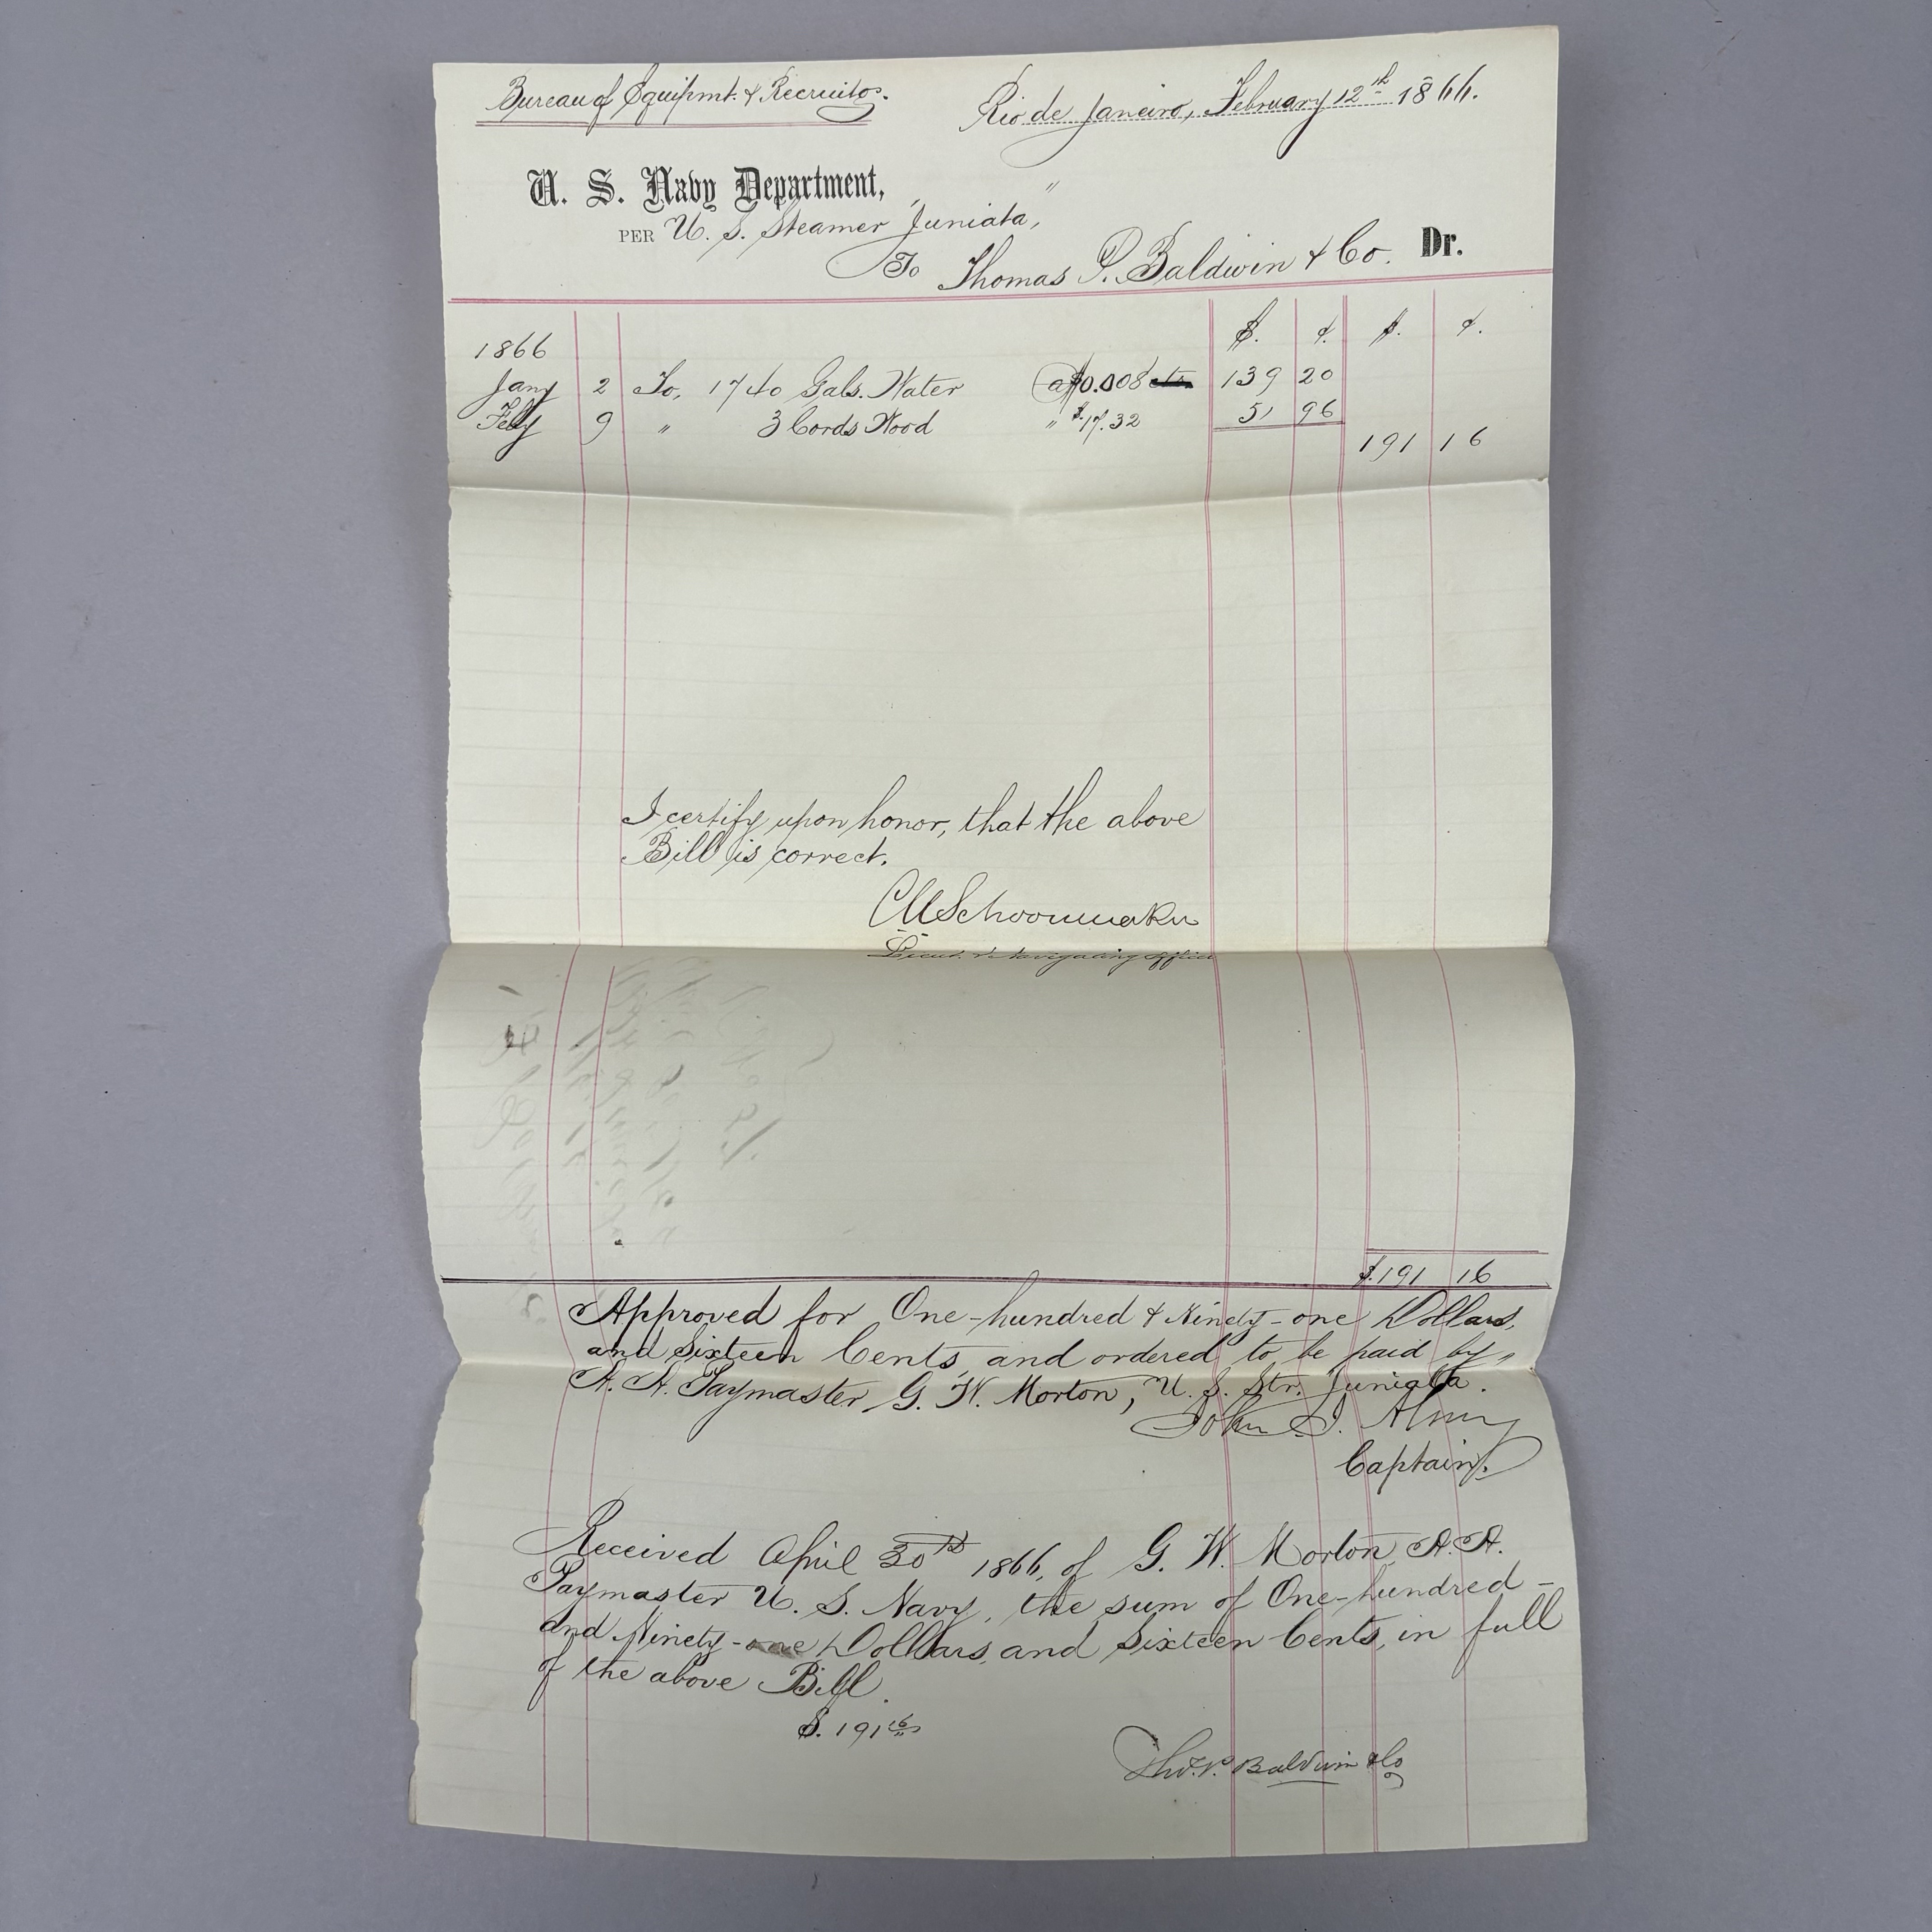 Bureau of Equipmt. & Recruitg.
Rio de Janeiro, February 12th 1866.
U. S. Navy Department,
PER U. S. Steamer "Juniata",
To Thomas P. Baldwin & Co. Dr.
$. ¢. $. ¢.
1866
Jany 2 To, 1740 Gals. Water @ $0.008 cts. 139 20
Feby 9 " 3 Cords Wood " $17.32 51 96
191 16
I certify upon honor, that the above
Bill is correct.
CM Schoonmaker
Lieut. & Navigating Officer
$.191 16
Approved for One-hundred & Ninety-one Dollars,
and Sixteen Cents, and ordered to be paid by,
A. A. Paymaster G. W. Morton, U. S. Str. "Juniata".
John J. Almy
Captain.
Received April 30th 1866, of G. W. Morton, A. A.
Paymaster U. S. Navy, the sum of One-hundred-
and Ninety-one Dollars, and Sixteen Cents, in full
of the above Bill.
$. 191 16
Thos. P. Baldwin & Co